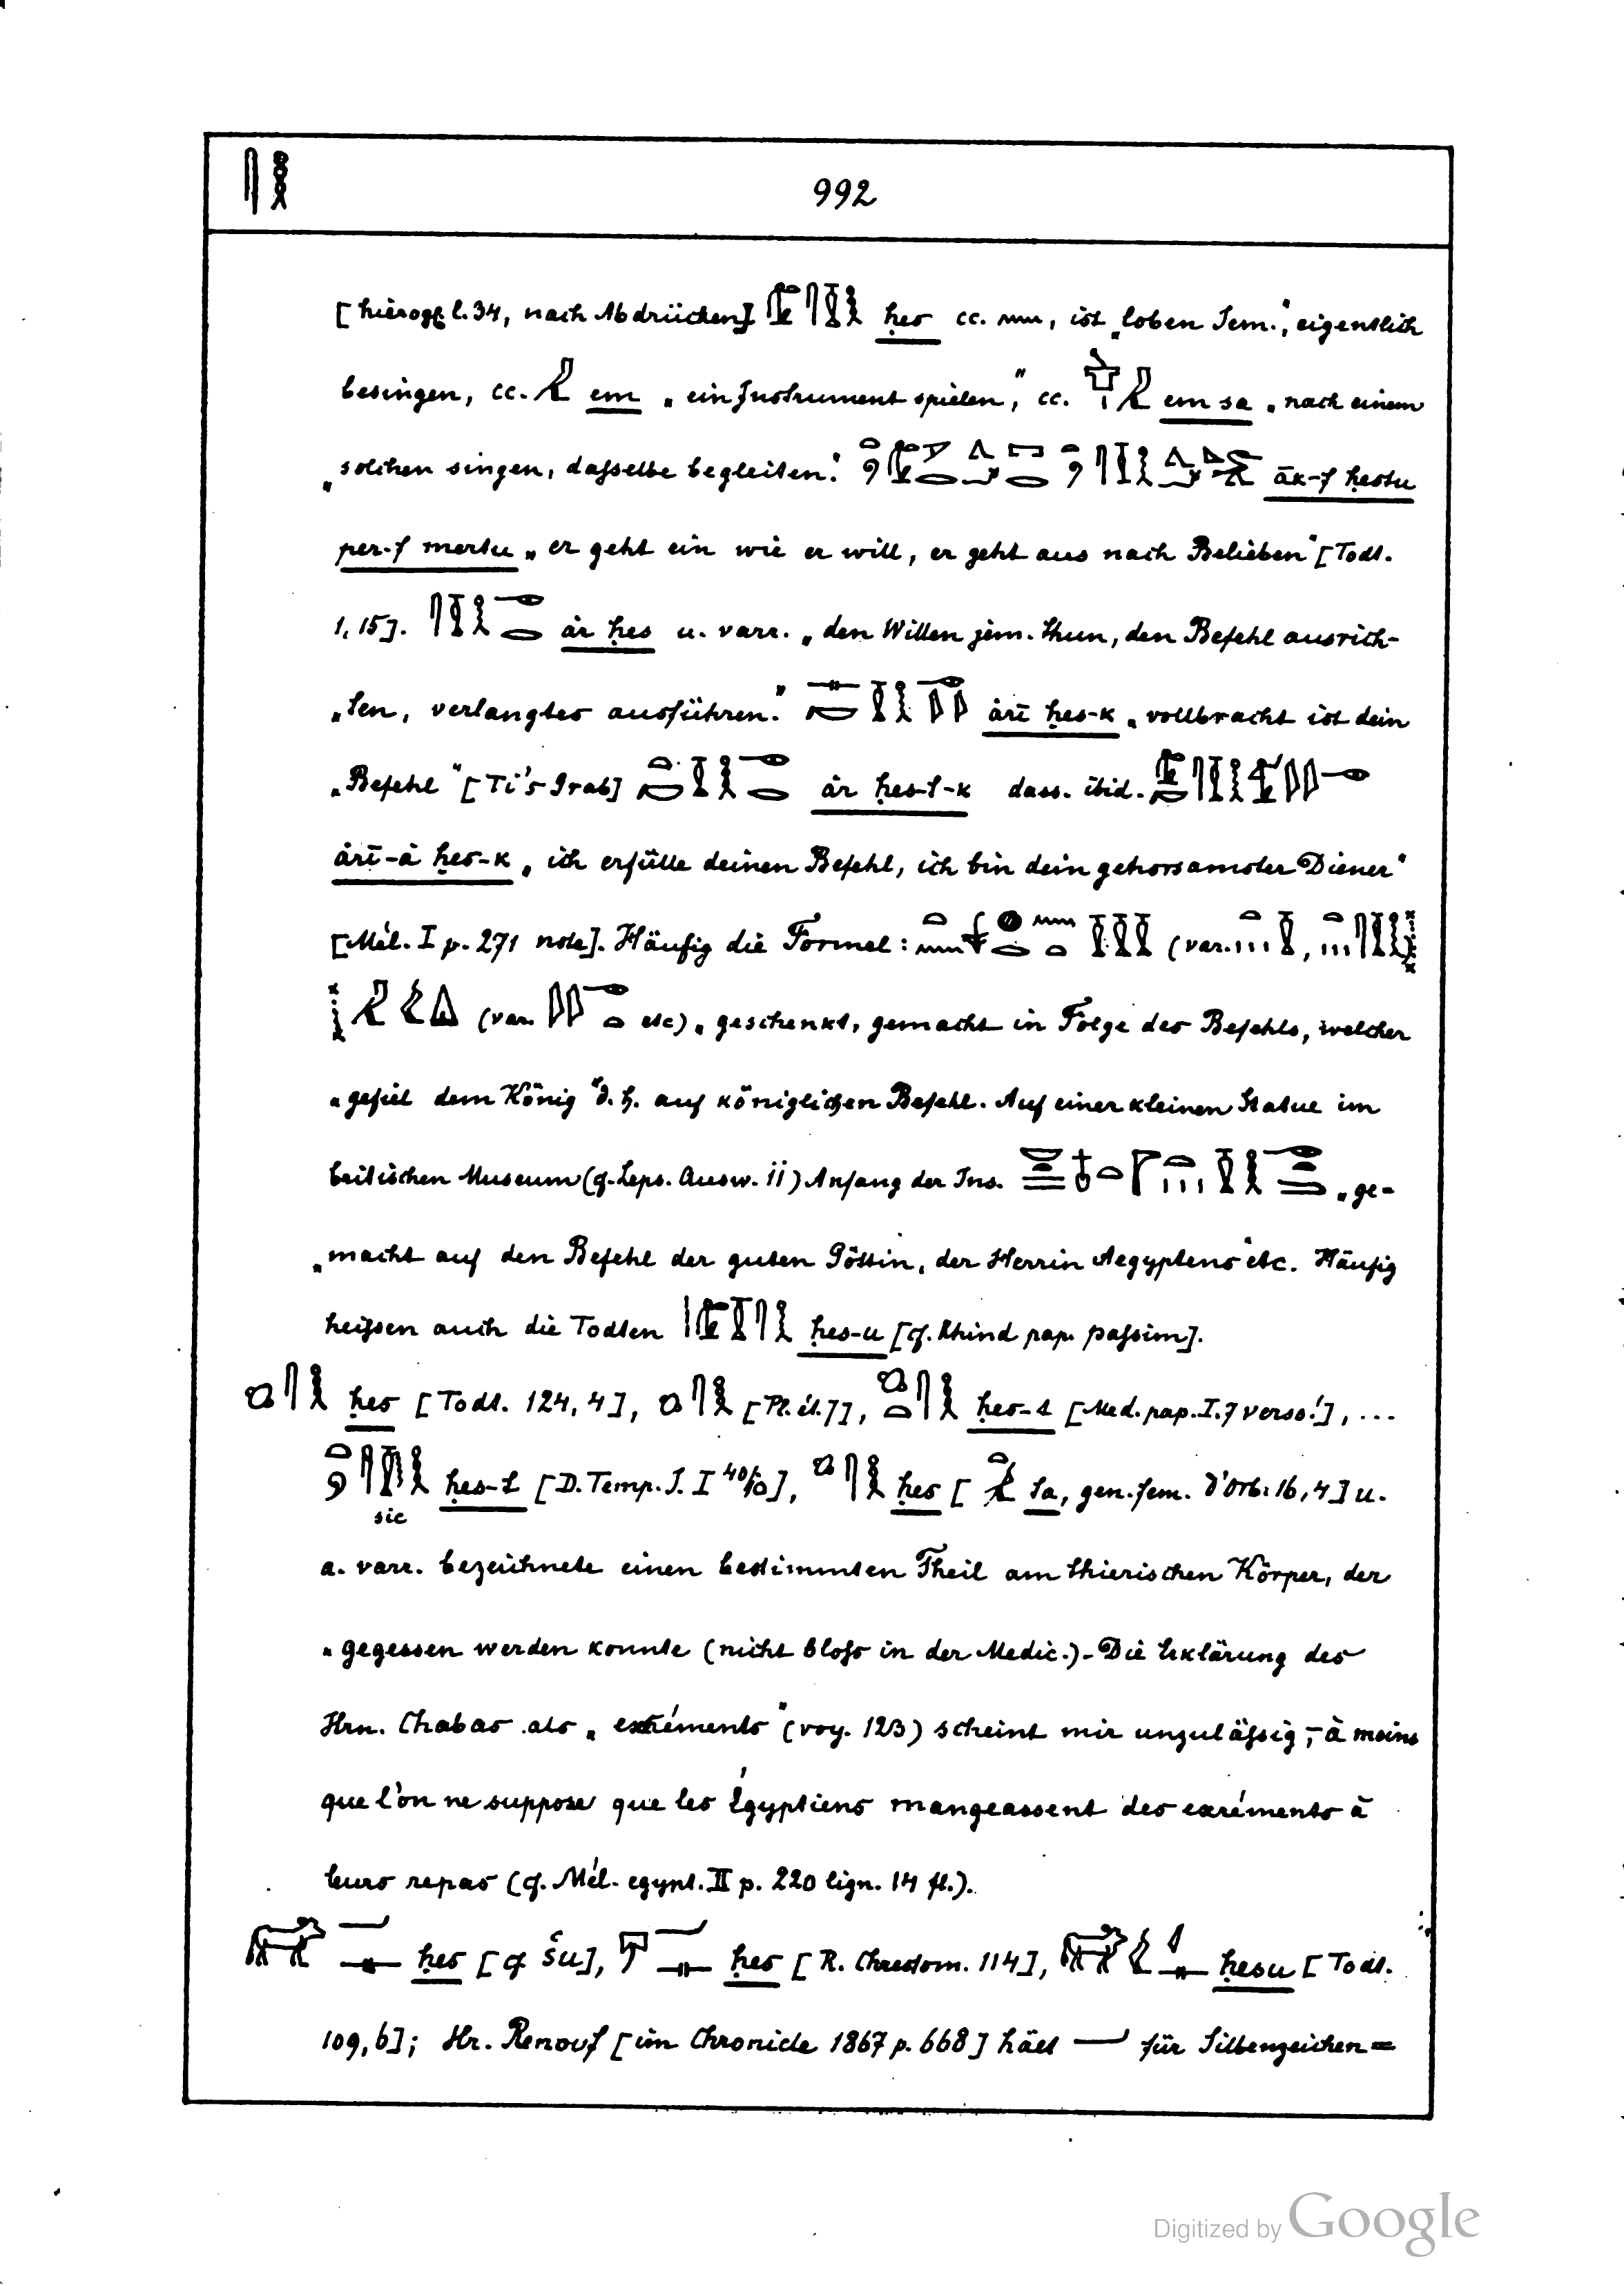 992
[hierogl. l. 34, nach Abdrücken] ḥes cc. , ist „loben Jem.", eigentlich
besingen, cc. em „ein Instrument spielen", cc. em sa „nach einem
„solchen singen, daſselbe begleiten." āk-f ḥestu
per-f mertu „er geht ein wie er will, er geht aus nach Belieben" [Todt.
1,15]. ȧr ḥes u. varr. „den Willen jem. thun, den Befehl ausrich-
„ten, verlangtes ausführen." ȧrī ḥes-k „vollbracht ist dein
„Befehl" [Ti's Grab] ȧr ḥes-t-k dass. ibid.
ȧrī-ȧ ḥes-k „ich erfülle deinen Befehl, ich bin dein gehorsamster Diener"
[Mél. I p. 271 note]. Häufig die Formel: (var. ,
(var. etc) „geschenkt, gemacht in Folge des Befehls, welcher
„gefiel dem König" d. h. auf königlichen Befehl. Auf einer kleinen Statue im
britischen Museum (cf. Leps. Ausw. 11) Anfang der Ins. „ge-
„macht auf den Befehl der guten Göttin, der Herrin Aegyptens" etc. Häufig
heiſsen auch die Todten ḥes-u [cf. Rhind pap. paſsim].
ḥes [Todt. 124, 4], [Pl. ét. 7], ḥes-t [Med. pap. I. 7 verso!], ...
ḥes-t [D. Temp. J. I ], ḥes [ ta, gen. fem. d'Orb. 16, 4] u.
sic
a. varr. bezeichnete einen bestimmten Theil am thierischen Körper, der
„gegessen werden konnte (nicht bloſs in der Medic.) - Die Erklärung des
Hrn. Chabas als „excréments" (voy. 123) scheint mir unzuläſsig, - à moins
que l'on ne suppose que les Égyptiens mangeassent des exréments à
leurs repas (cf. Mél. egypt. II p. 220 lign. 14 fl.).
ḥes [cf Šu], ḥes [R. Chrestom. 114], ḥesu [Todt.
109, 6]; Hr. Renouf [im Chronicle 1867 p. 668] hält für Silbenzeichen =
Digitized by Google